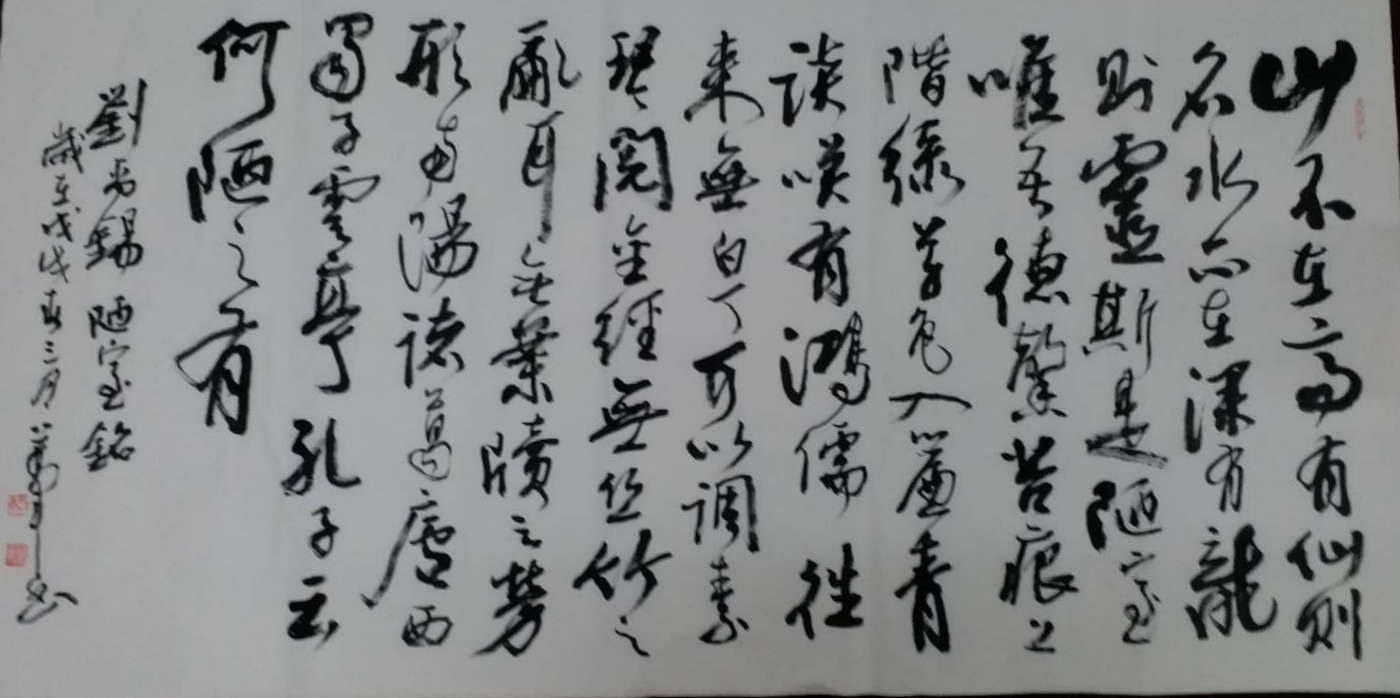 山不在高有仙则
名水亦在深有龍
则靈斯是陋室
唯吾德馨苔痕上
階綠草色入簾青
談笑有鴻儒往
来無白丁可以調素
琴閲金經無丝竹之
亂耳無案牘之勞
形南陽諸葛廬西
蜀子雲亭孔子云
何陋之有
劉禹錫陋室銘
歲在戊戌春三月 書